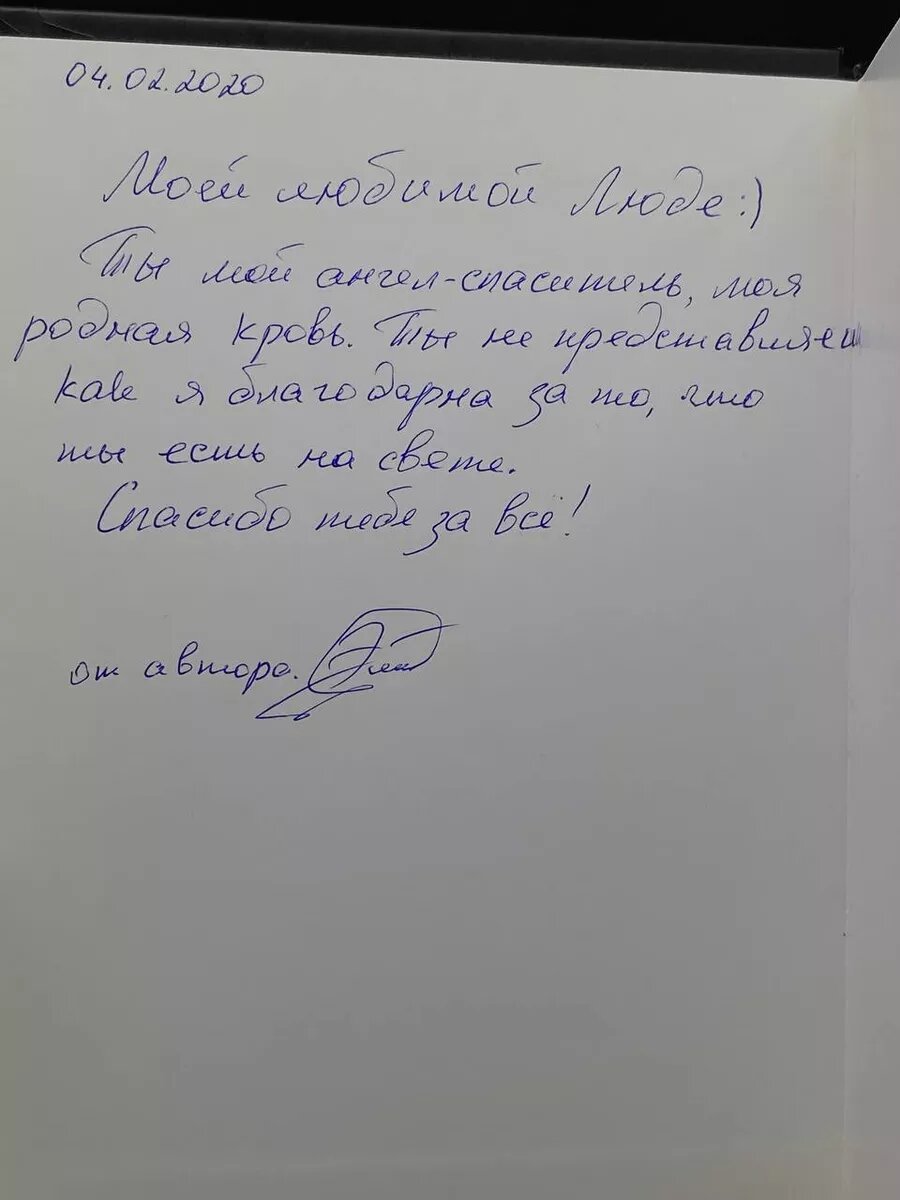 04.02.2020
Моей любимой Люде :)
Ты мой ангел-спаситель, моя
родная кровь. Ты не представляеш
как я благодарна за то, что
ты есть на свете.
Спасибо тебе за всё!
от автора.